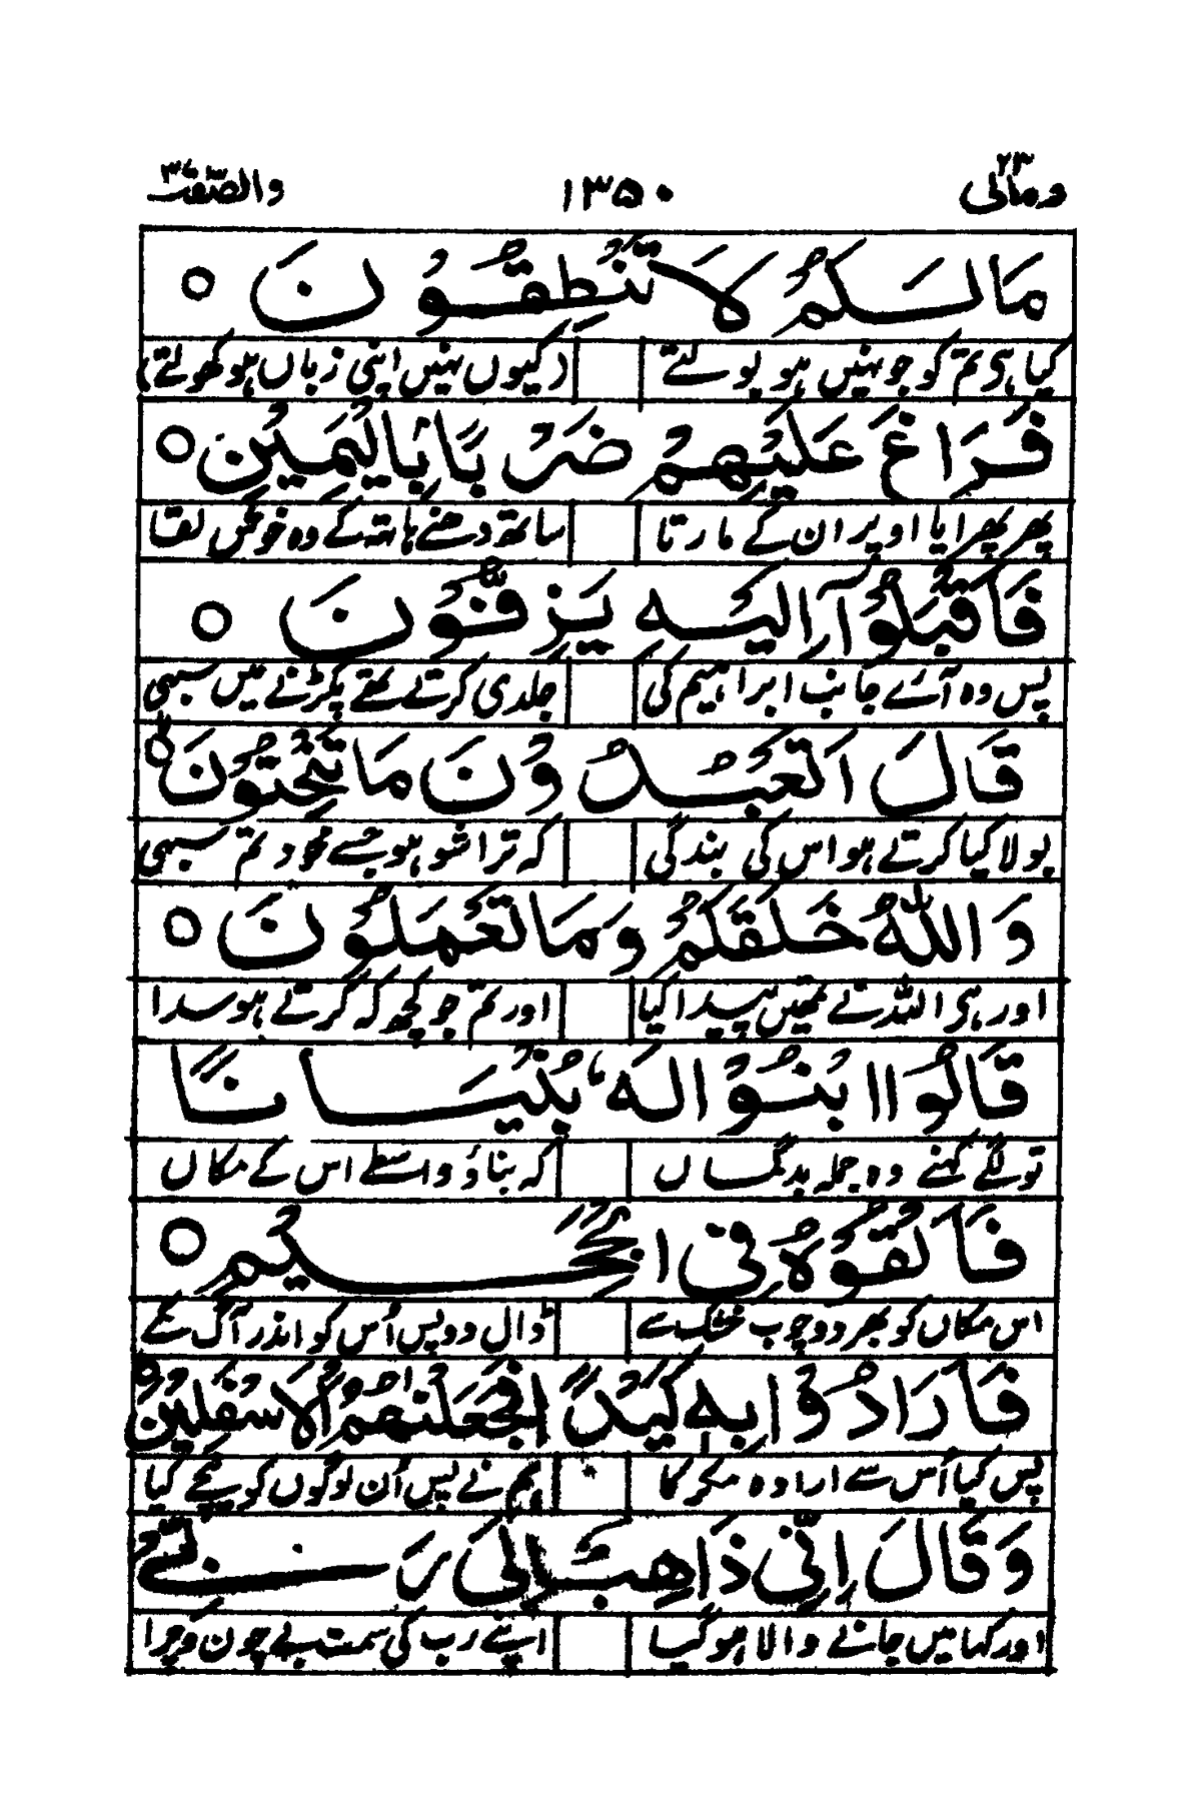 ومالی ۲۳ ۱۳۵۰ والصّٰفّٰت ۳۷
مَا لَكُمْ لَا تَنْطِقُوْنَ ○
کیا ہی تم کو جو نہیں ہو بولتے (کیوں نہیں اپنی زباں ہو کھولتے)
فَرَاغَ عَلَيْهِمْ ضَرْبًا بِالْيَمِيْنِ ○
پھر پھر ایا اوپر ان کے مارتا ساتھ دھنے ہاتھ کے وہ خوش لقا
فَاَقْبَلُوْٓا اِلَيْهِ يَزِفُّوْنَ ○
پس وہ آئے جانب ابراہیم کی جلدی کرتے تھے پکڑنے میں سبھی
قَالَ اَتَعْبُدُوْنَ مَا تَنْحِتُوْنَ ○
بولا کیا کرتے ہو اس کی بندگی کہ تراشو ہو جسے خود تم سبھی
وَاللّٰهُ خَلَقَكُمْ وَمَا تَعْمَلُوْنَ ○
اور ہی اللہ نے تمھیں پیدا کیا اور تم جو کچھ کہ کرتے ہو سدا
قَالُوا ابْنُوْا لَهٗ بُنْيَانًا
تو لگے کہنے وہ جملہ بدگماں کہ بناؤ واسطے اس کے مکاں
فَاَلْقُوْهُ فِي الْجَحِيْمِ ○
اس مکاں کو بھر دو چوب خشک سے ڈال دو پس اُس کو اندر آگ کے
فَاَرَادُوْا بِهٖ كَيْدًا فَجَعَلْنٰهُمُ الْاَسْفَلِيْنَ ○
پس کیا اُس سے ارادہ مکر کا ہم نے پس اُن لوگوں کو نیچے کیا
وَقَالَ اِنِّيْ ذَاهِبٌ اِلٰى رَبِّيْ
اور کہا میں جانے والا ہو گیا اپنے رب کی سمت بے چون و چرا